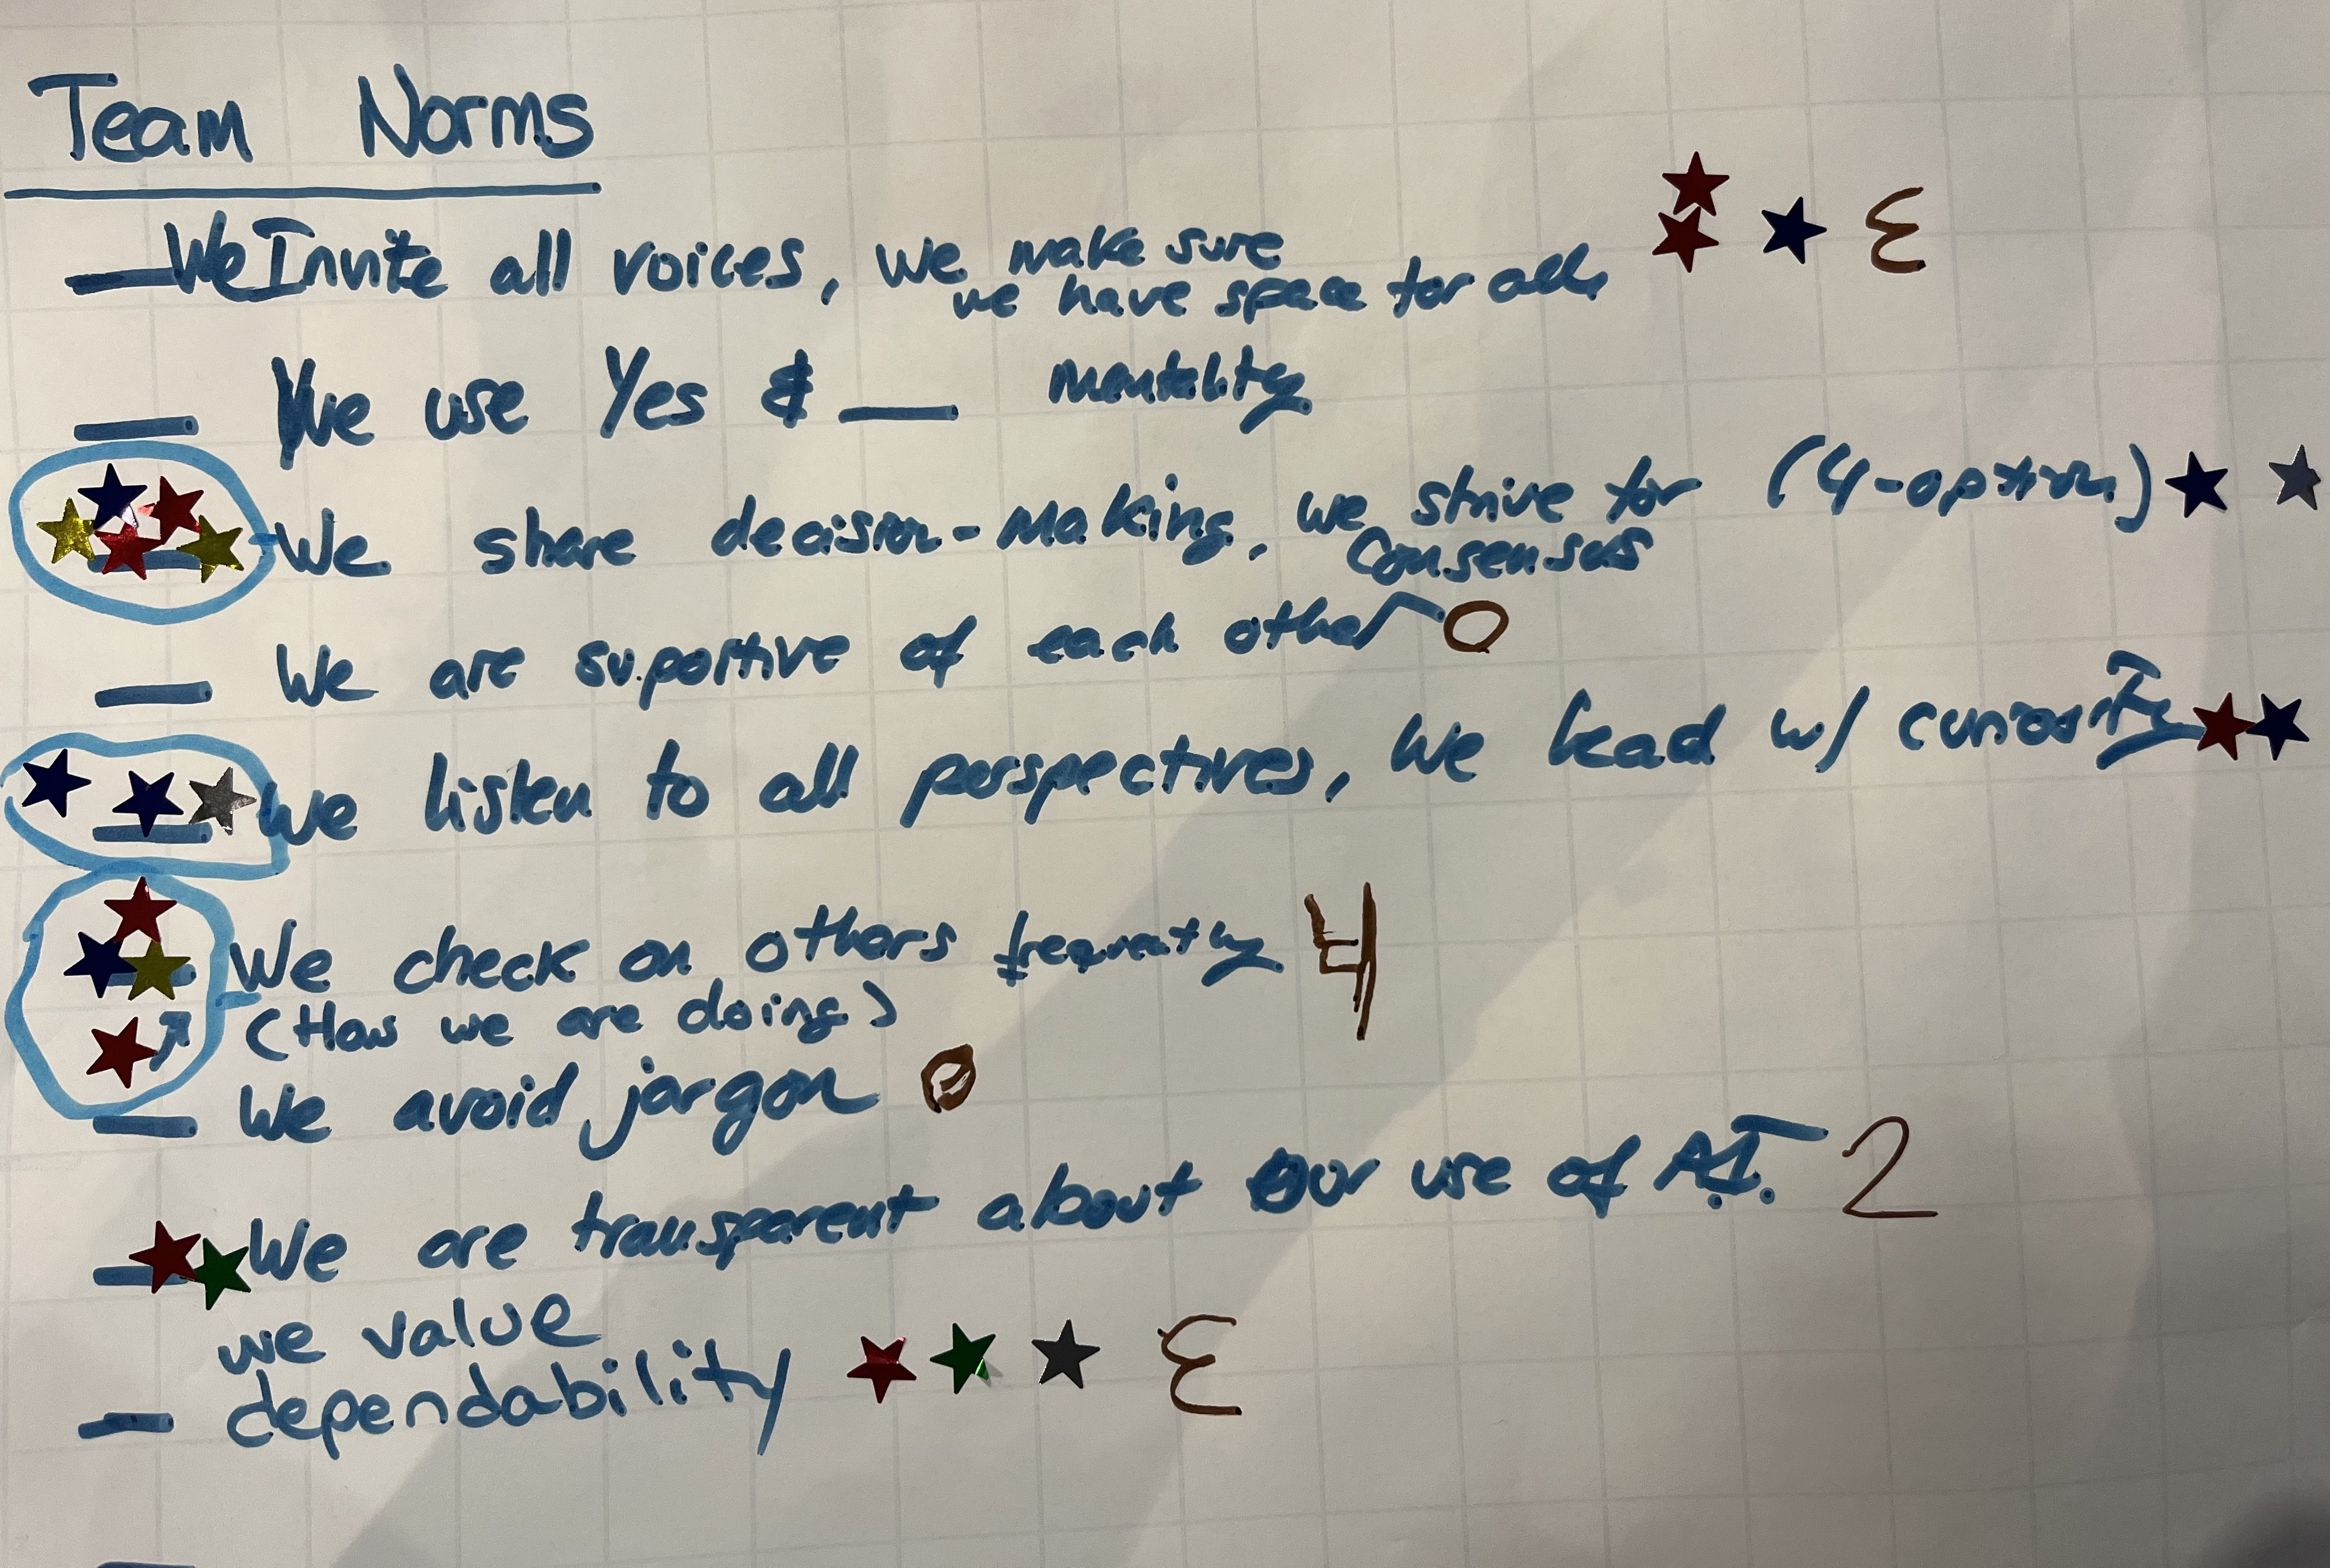 Team Norms
We Invite all voices, we make sure
we have space for all.
We use Yes & __ mentality
We share decision-making, we strive for (4-option)
consensus
We are suportive of each other 0
We listen to all perspectives, we lead w/ curiosity
We check on others frequently 4
(How we are doing)
We avoid jargon 0
We are transparent about our use of A.I. 2
we value
dependability